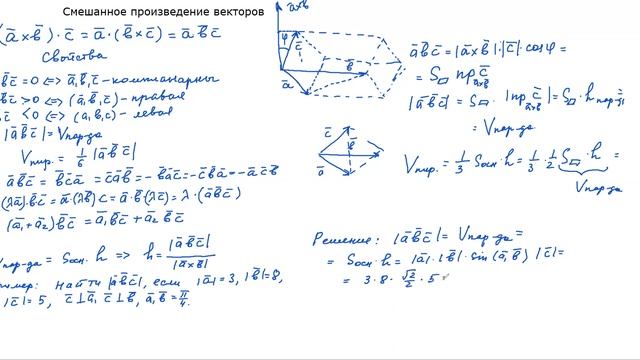 Смешанное произведение векторов
(a̅ x b̅) · c̅ = a̅ · (b̅ x c̅) = a̅ b̅ c̅
Свойства
b̅ c̅ = 0 <=> a̅, b̅, c̅ - компланарны
b̅ c̅ > 0 <=> (a̅, b̅, c̅) - правая
c̅ < 0 <=> (a, b, c) - левая
|a̅ b̅ c̅| = Vпар-да
Vпир. = 1/6 |a̅ b̅ c̅|
a̅ b̅ c̅ = b̅ c̅ a̅ = c̅ a̅ b̅ = - b̅ a̅ c̅ = - c̅ b̅ a̅ = - a̅ c̅ b̅
(λa̅) b̅ c̅ = a̅ (λb̅) c̅ = a̅ · b̅ · (λc̅) = λ · (a̅ b̅ c̅)
(a̅₁ + a̅₂) b̅ c̅ = a̅₁ b̅ c̅ + a̅₂ b̅ c̅
Vпар-да = Sосн. h => h = |a̅ b̅ c̅| / |a̅ x b̅|
ример: найти |a̅ b̅ c̅|, если |a̅| = 3, |b̅| = 8,
|c̅| = 5, c̅ ⊥ a̅, c̅ ⊥ b̅, a̅, b̅ = π/4.
a x b
φ
c̅
b̅
a̅
c̅
b̅
a̅
a̅ b̅ c̅ = |a̅ x b̅| · |c̅| · cos φ =
= S▱ пр a̅xb̅ c̅
|a̅ b̅ c̅| = S▱ · |пр a̅xb̅ c̅| = S▱ · h пар-да
= Vпар-да
Vпир. = 1/3 Sосн. h = 1/3 · 1/2 S▱ · h =
Vпар-да
Решение: |a̅ b̅ c̅| = Vпар-да =
= Sосн. h = |a̅| · |b̅| · sin (a̅, b̅) |c̅| =
= 3 · 8 · √2/2 · 5